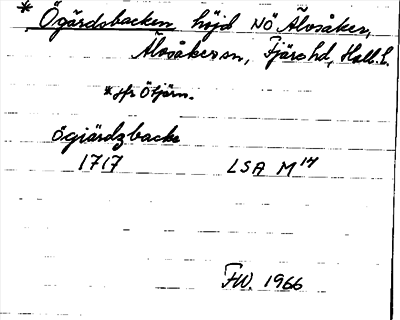 * Ögärdsbacken höjd NÖ Älvsåker,
Älvsåkers sn, Fjäre hd, Hall. l.
* Jfr Ötjärn.
ögiärdzbacke
1717 LSA M 14
FW. 1966